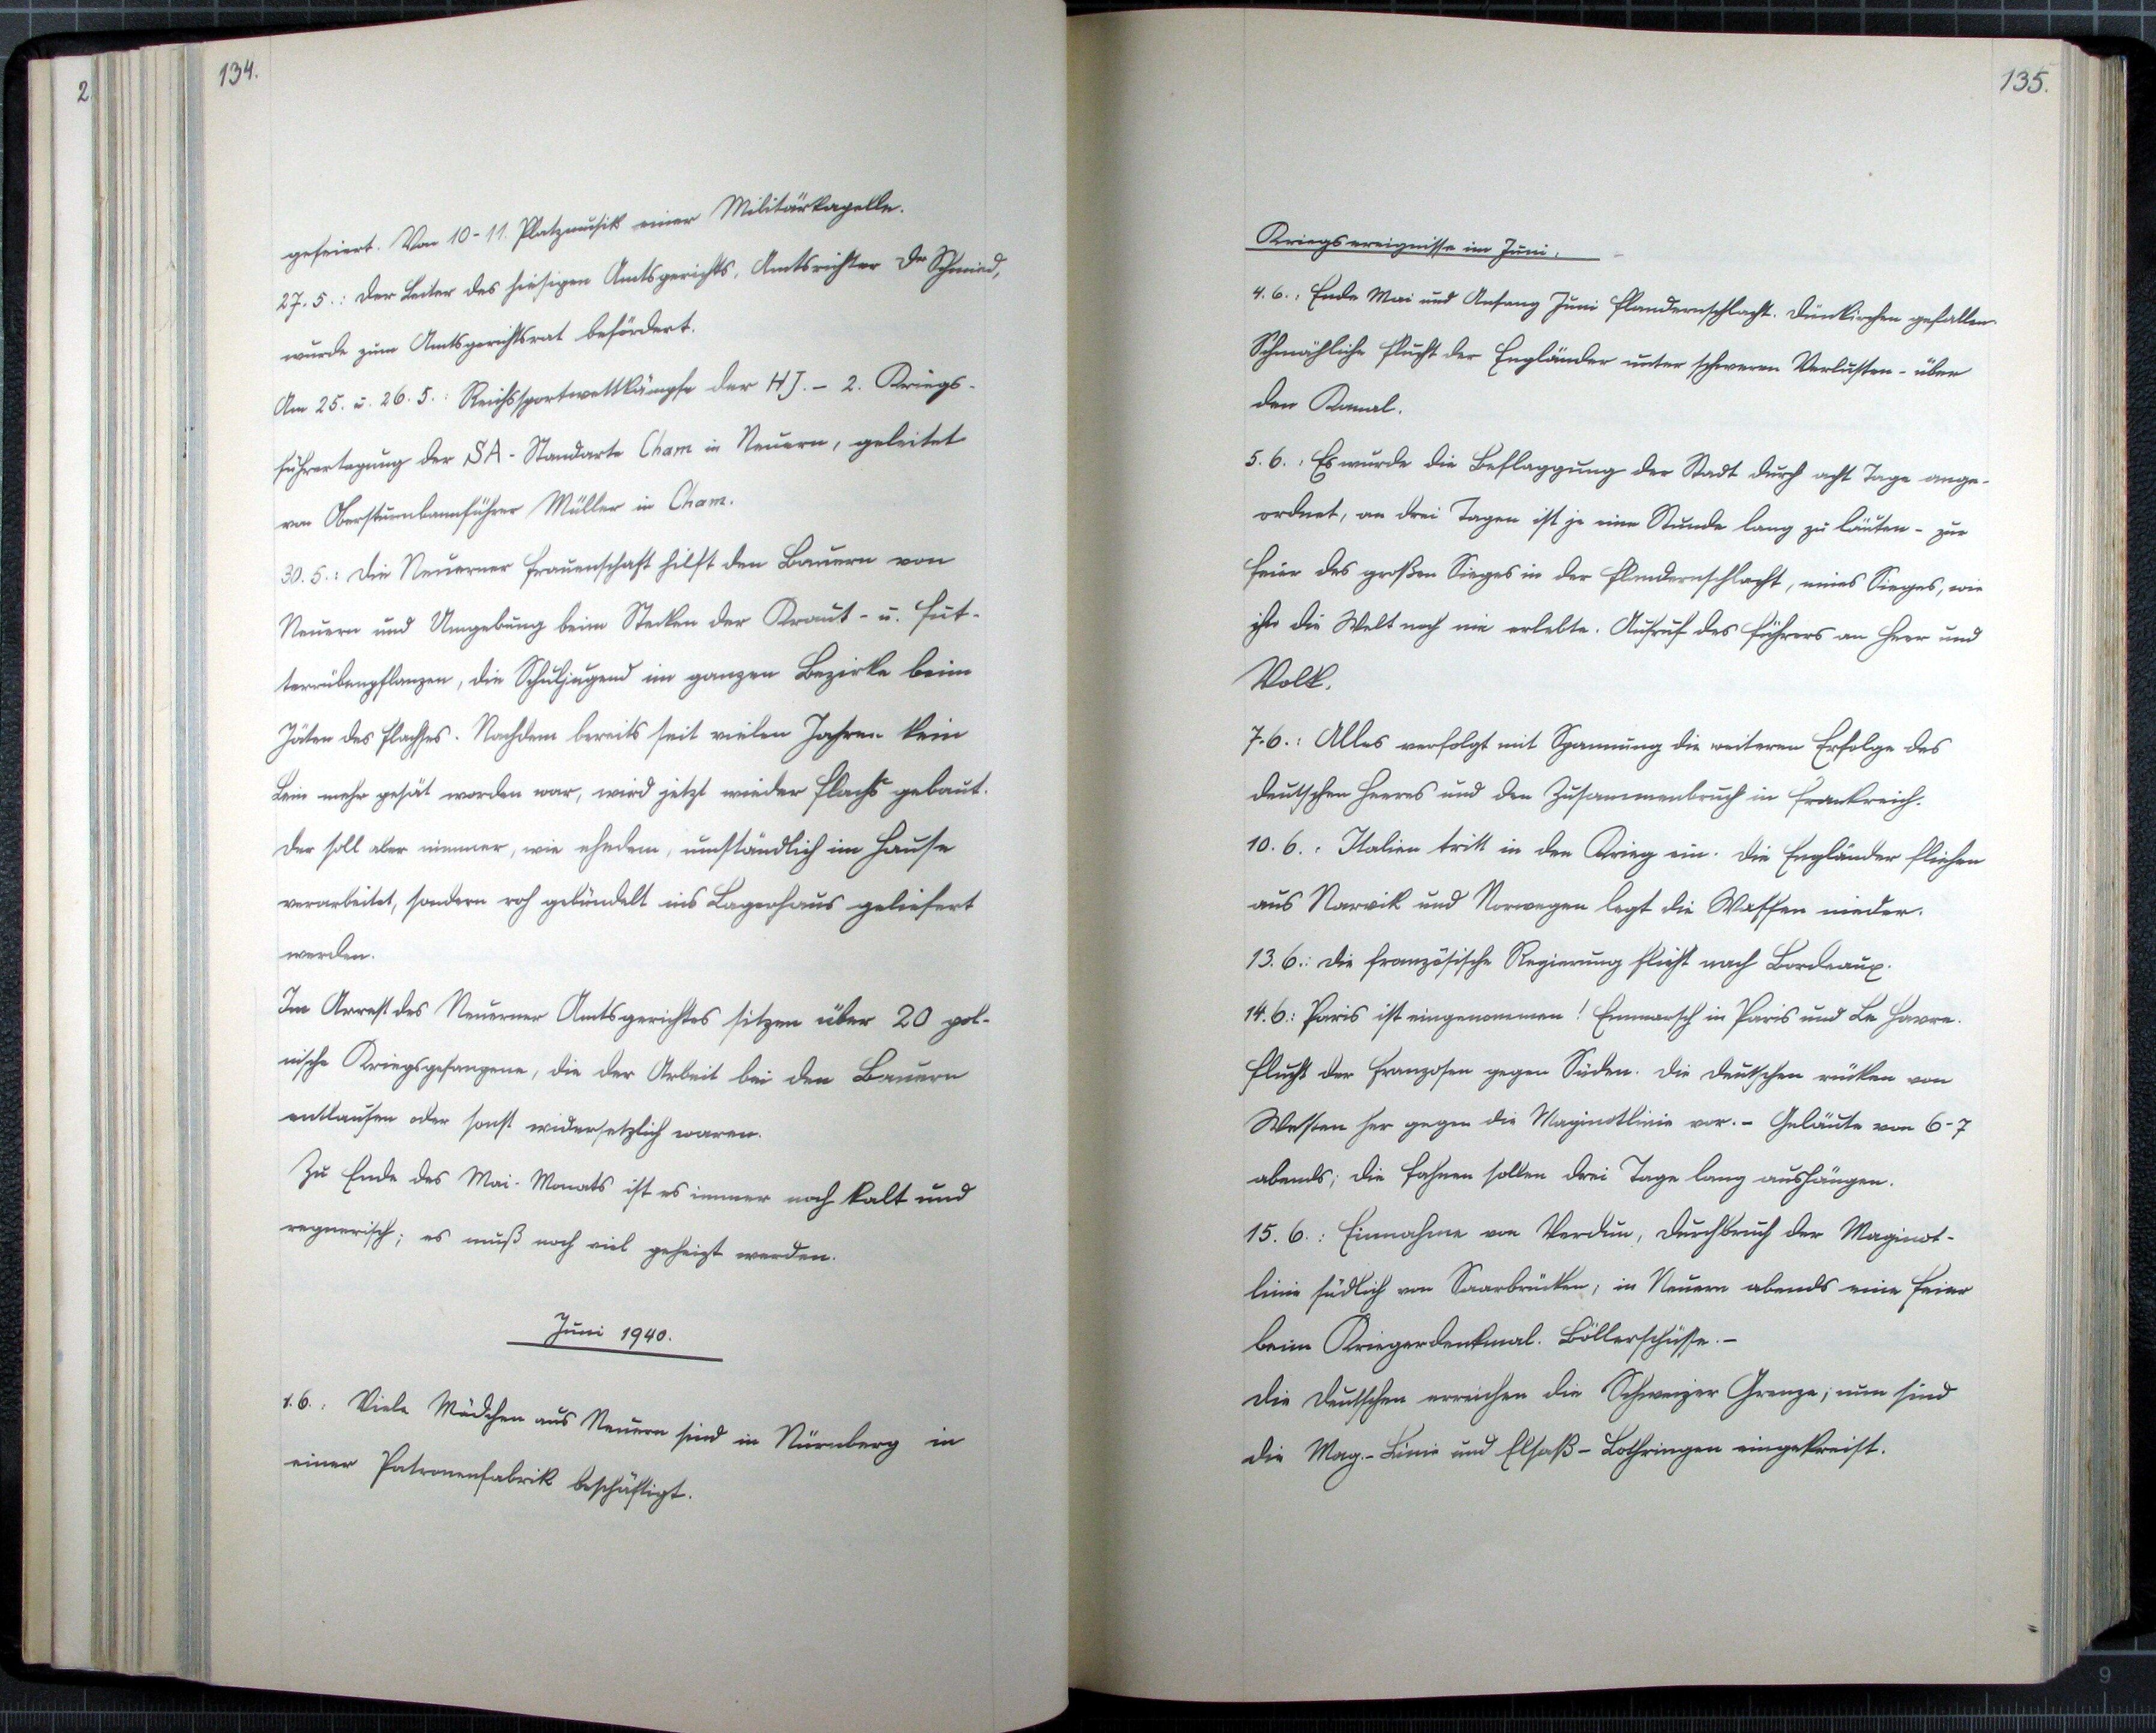 2
134.
gefeiert. Von 10-11. Platzmusik einer Militärkapelle.
27.5.: Der Leiter des hiesigen Amtsgerichts, Amtsrichter Dr Schmied,
wurde zum Amtsgerichtsrat befördert.
Am 25. u. 26.5.: Reichssportwettkämpfe der HJ. - 2. Kriegs-
führertagung der SA-Standarte Cham in Neuern, geleitet
von Obersturmbannführer Müller in Cham.
30.5.: Die Neuerner Frauenschaft hilft den Bauern von
Neuern und Umgebung beim Stecken der Kraut- u. Fut-
terrübenpflanzen, die Schuljugend im ganzen Bezirke beim
Jäten des Flachses. Nachdem bereits seit vielen Jahren kein
Lein mehr gesät worden war, wird jetzt wieder Flachs gebaut.
Der soll aber nimmer, wie ehedem, umständlich im Hause
verarbeitet, sondern roh gebündelt ins Lagerhaus geliefert
werden.
Im Arrest des Neuerner Amtsgerichtes sitzen über 20 pol-
nische Kriegsgefangene, die der Arbeit bei den Bauern
entlaufen oder sonst widersetzlich waren.
Zu Ende des Mai-Monats ist es immer noch kalt und
regnerisch; es muß noch viel geheizt werden.
Juni 1940.
1.6.: Viele Mädchen aus Neuern sind in Nürnberg in
einer Patronenfabrik beschäftigt.
135.
Kriegsereignisse im Juni.
4.6.: Ende Mai und Anfang Juni Flandernschlacht. Dünkirchen gefallen.
Schmähliche Flucht der Engländer unter schweren Verlusten - über
den Kanal.
5.6.: Es wurde die Beflaggung der Stadt durch acht Tage ange-
ordnet, an drei Tagen ist je eine Stunde lang zu läuten - zur
Feier des großen Sieges in der Flandernschlacht, eines Sieges, wie
ihn die Welt noch nie erlebte. Aufruf des Führers an Heer und
Volk.
7.6.: Alles verfolgt mit Spannung die weiteren Erfolge des
deutschen Heeres und den Zusammenbruch in Frankreich.
10.6.: Italien tritt in den Krieg ein. Die Engländer fliehen
aus Narvik und Norwegen legt die Waffen nieder.
13.6.: Die französische Regierung flieht nach Bordeaux.
14.6.: Paris ist eingenommen! Einmarsch in Paris und Le Havre.
Flucht der Franzosen gegen Süden. Die Deutschen rücken von
Westen her gegen die Maginotlinie vor. - Geläute von 6-7
abends; die Fahnen sollen drei Tage lang aushängen.
15.6.: Einnahme von Verdun, Durchbruch der Maginot-
linie südlich von Saarbrücken; in Neuern abends eine Feier
beim Kriegerdenkmal. Böllerschüsse. -
Die Deutschen erreichen die Schweizer Grenze; nun sind
die Mag.-Linie und Elsaß-Lothringen eingekreist.
9